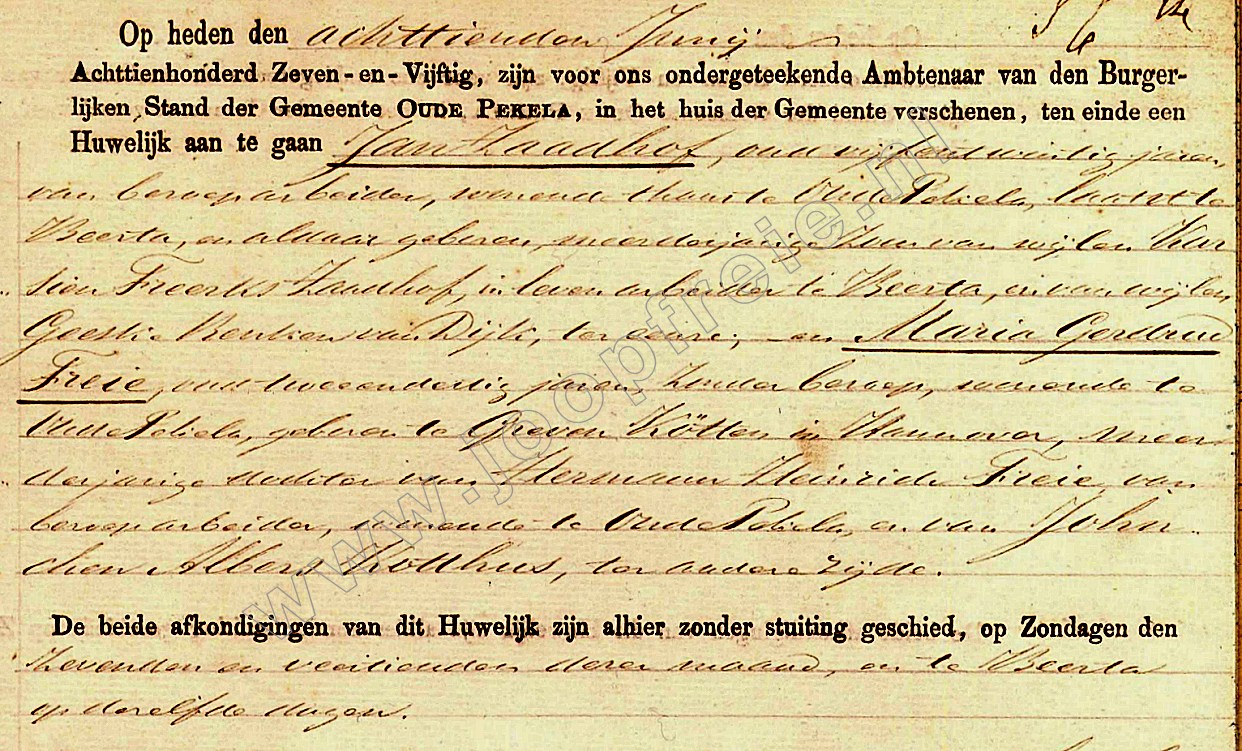 Op heden den achttienden Junij
Achttienhonderd Zeven-en-Vijftig, zijn voor ons ondergeteekende Ambtenaar van den Burger-
lijken Stand der Gemeente OUDE PEKELA, in het huis der Gemeente verschenen, ten einde een
Huwelijk aan te gaan Jan Zaadhof, oud vijfentwintig jaren,
van beroep arbeider, wonende thans te Oude Pekela, laatst te
Beerta, en aldaar geboren, meerderjarige zoon van wijlen Har
sien Freerks Zaadhof, in leven arbeider te Beerta, en van wijlen
Geeske Renken van Dijk, ter eenre; en Maria Gerdrud
Freie, oud tweeendertig jaren, zonder beroep, wonende te
Oude Pekela, geboren te Greven Kötten in Hannover, meer
derjarige dochter van Hermann Heinrich Freie van
beroep arbeider, wonende te Oude Pekela, en van John
chen Albers Kötthus, ter andere zijde.
De beide afkondigingen van dit Huwelijk zijn alhier zonder stuiting geschied, op Zondagen den
zevenden en veertienden dezer maand, en te Beerta
op dezelfde dagen.
www.joopfreie.nl